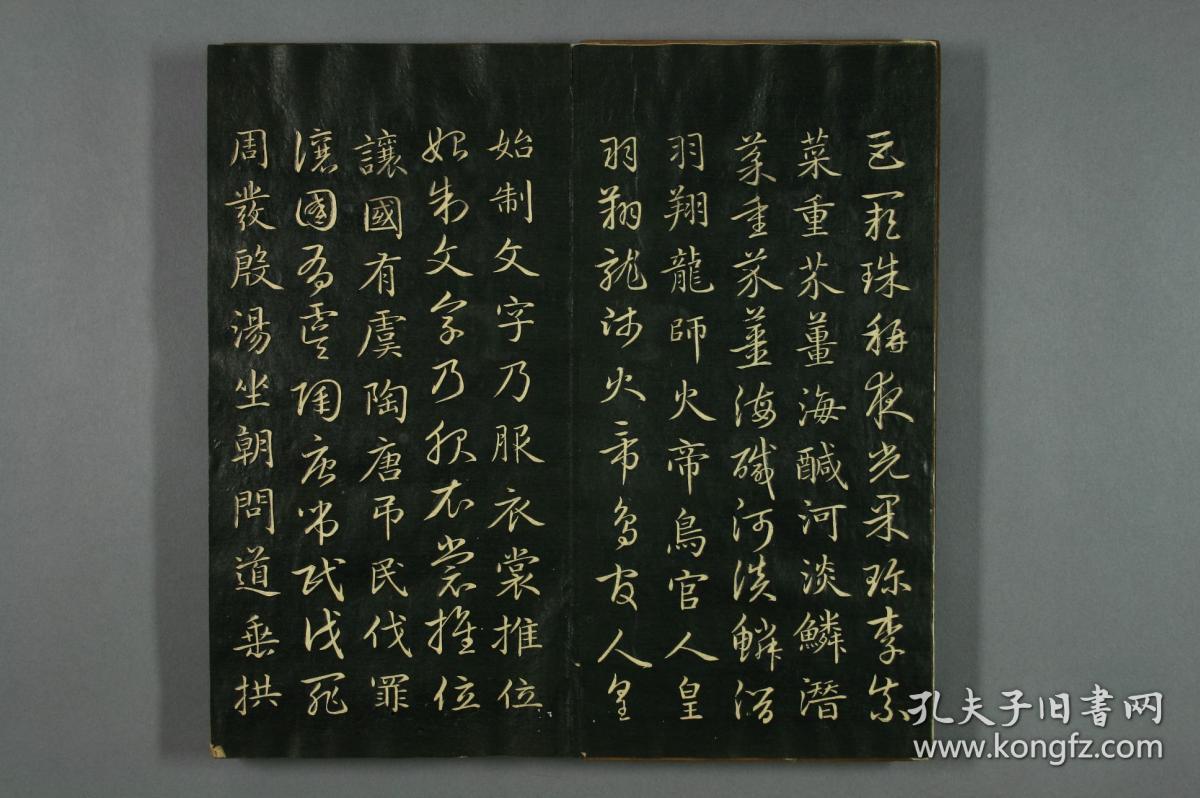 巨闕珠稱夜光果珍李柰
菜重芥薑海醎河淡鱗潛
菜重芥薑海醎河淡鱗潛
羽翔龍師火帝鳥官人皇
羽翔龍師火帝鳥官人皇
始制文字乃服衣裳推位
始制文字乃服衣裳推位
讓國有虞陶唐吊民伐罪
讓國有虞陶唐吊民伐罪
周發殷湯坐朝問道垂拱
孔夫子旧书网
www.kongfz.com